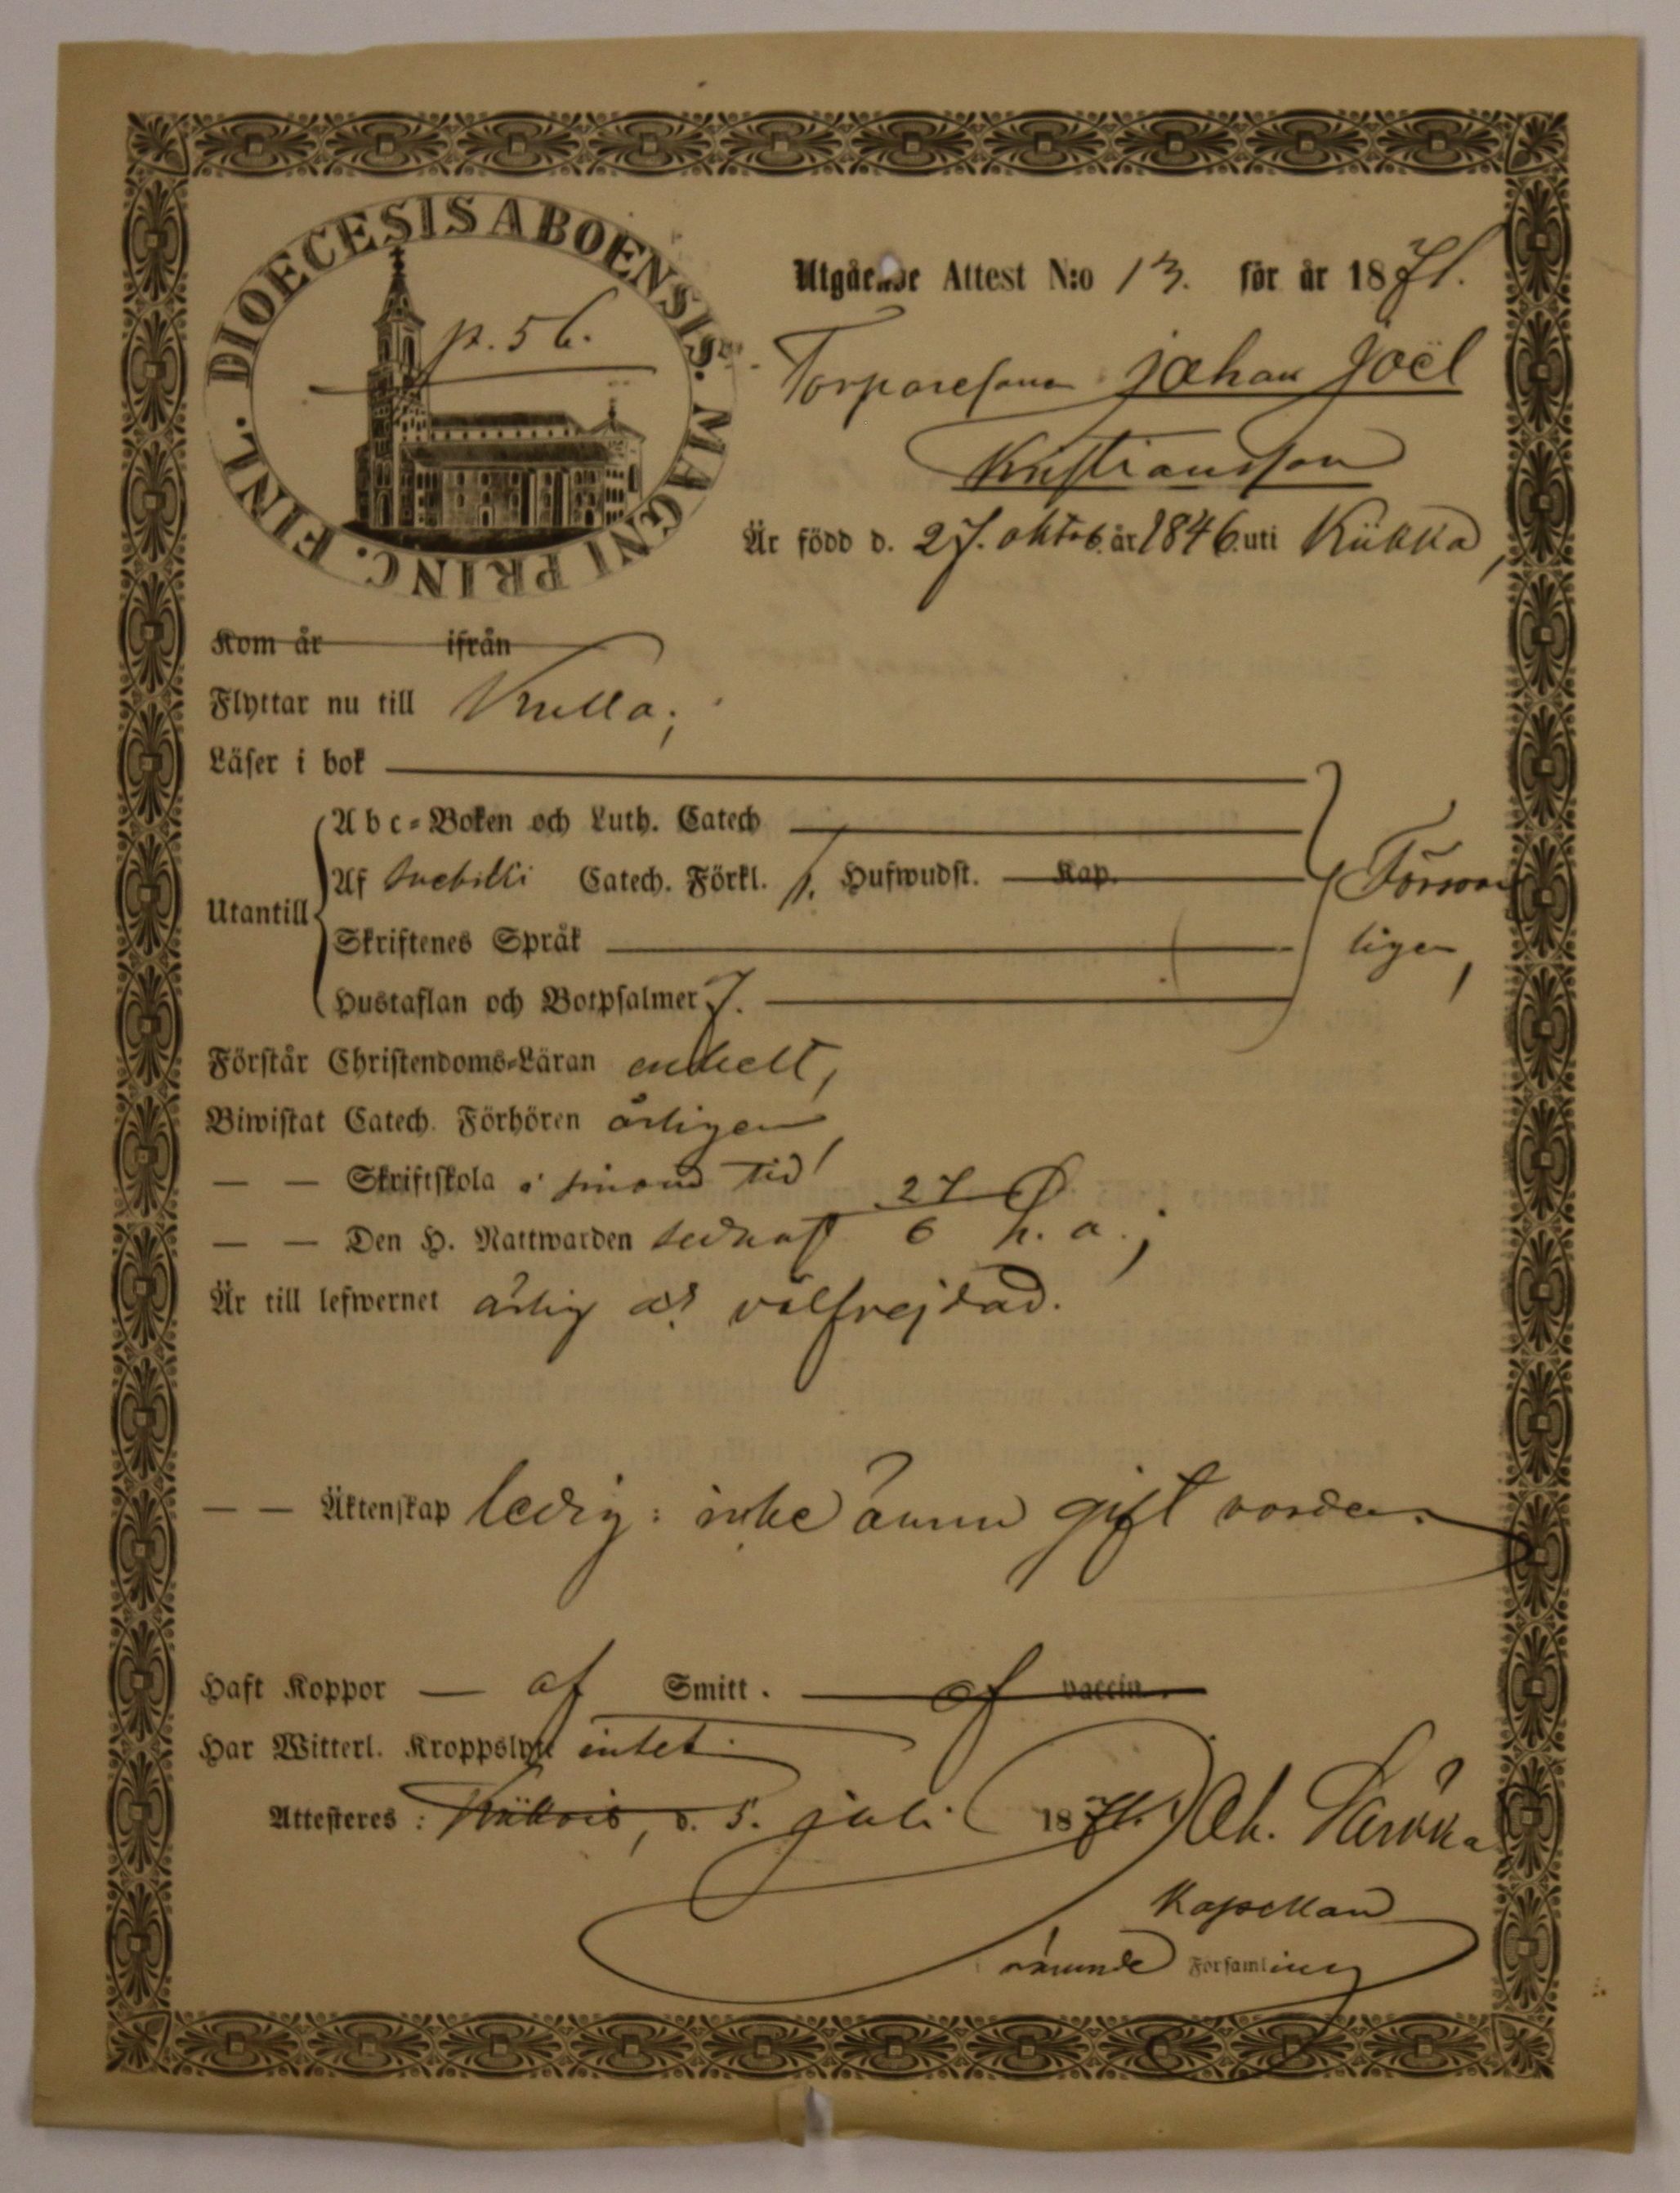 DIOECESIS ABOENSIS. MAGNI PRINC. FINL.
p. 56.
Utgående Attest N:o 13. för år 1871.
Torparesonen Johan Joël
Kristiansson
Är född d. 27. oktob. år 1846. uti Kiikka,
Kom år ifrån
Flyttar nu till Kulla;
Läser i bok
Utantill
Abc-Boken och Luth. Catech
Af Svebilii Catech. Förkl. 1. Hufwudst. Kap.
Skriftenes Språk
Hustaflan och Botpsalmer 7.
Förswarligen,
Förstår Christendoms-Läran enkelt,
Biwistat Catech. Förhören årligen,
— — Skriftskola i sinom tid,
— — Den H. Nattwarden sednast 27/6 h. a.;
Är till lefwernet ärlig och välfrejdad.
— — Äktenskap ledig: icke ännu gift vorden.
Haft Koppor — af Smitt. — af vaccin.
Har Witterl. Kroppslyte intet.
Attesteres: Kiikois, d. 5. juli 1871.
Kapellan
nämnde Församling